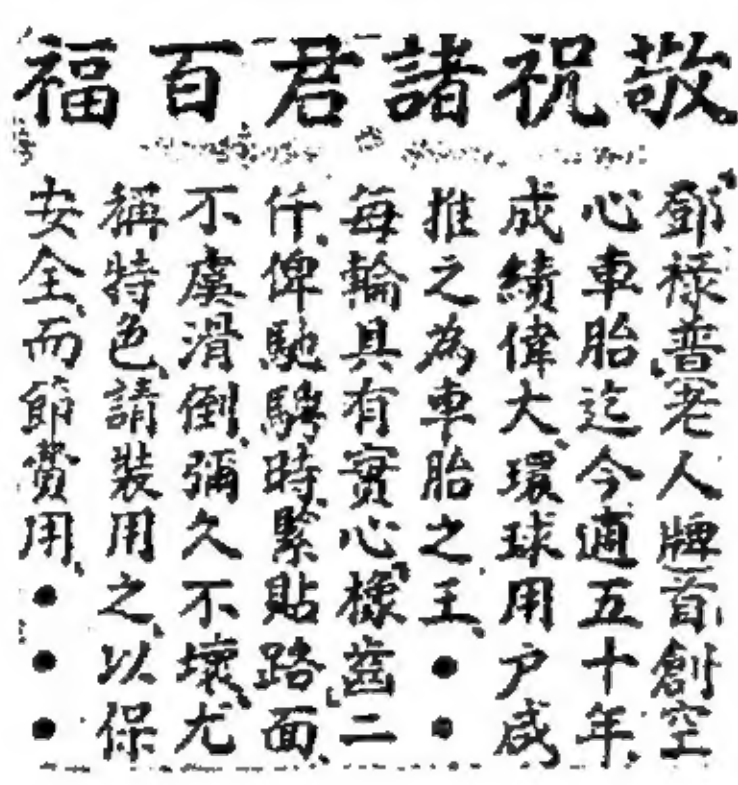 敬祝諸君百福
「鄧祿普」(老人牌)首創空
心車胎迄今適五十年、
成績偉大、環球用户咸
推之為車胎之王、●●
每輪具有實心「橡齒」二
仟、俾馳騁時、緊貼路面、
不虞滑倒、彌久不壞、尤
稱特色、請裝用之、以保
安全、而節費用、●●●